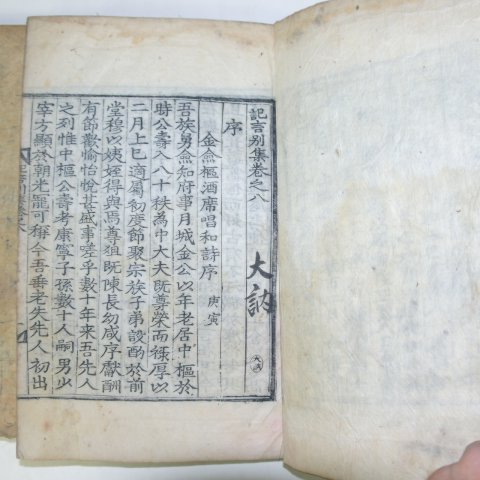 記言別集卷之八
大訥
序
金僉樞酒席唱和詩序 庚寅
吾族舅僉知府事月城金公以年老居中樞於
時公壽入八十秩為中大夫旣尊榮而祿厚以
二月上巳適屬初度節聚宗族子弟設酌於前
堂穆以姨姪得與焉尊狙旣陳長幼咸序獻酬
有節歡愉怡悅甚盛事嗟乎數十年来吾先人
之列惟中樞公壽考康寧子孫數十人嗣男少
宰方顯於朝光寵可稱今吾垂老失先人初出